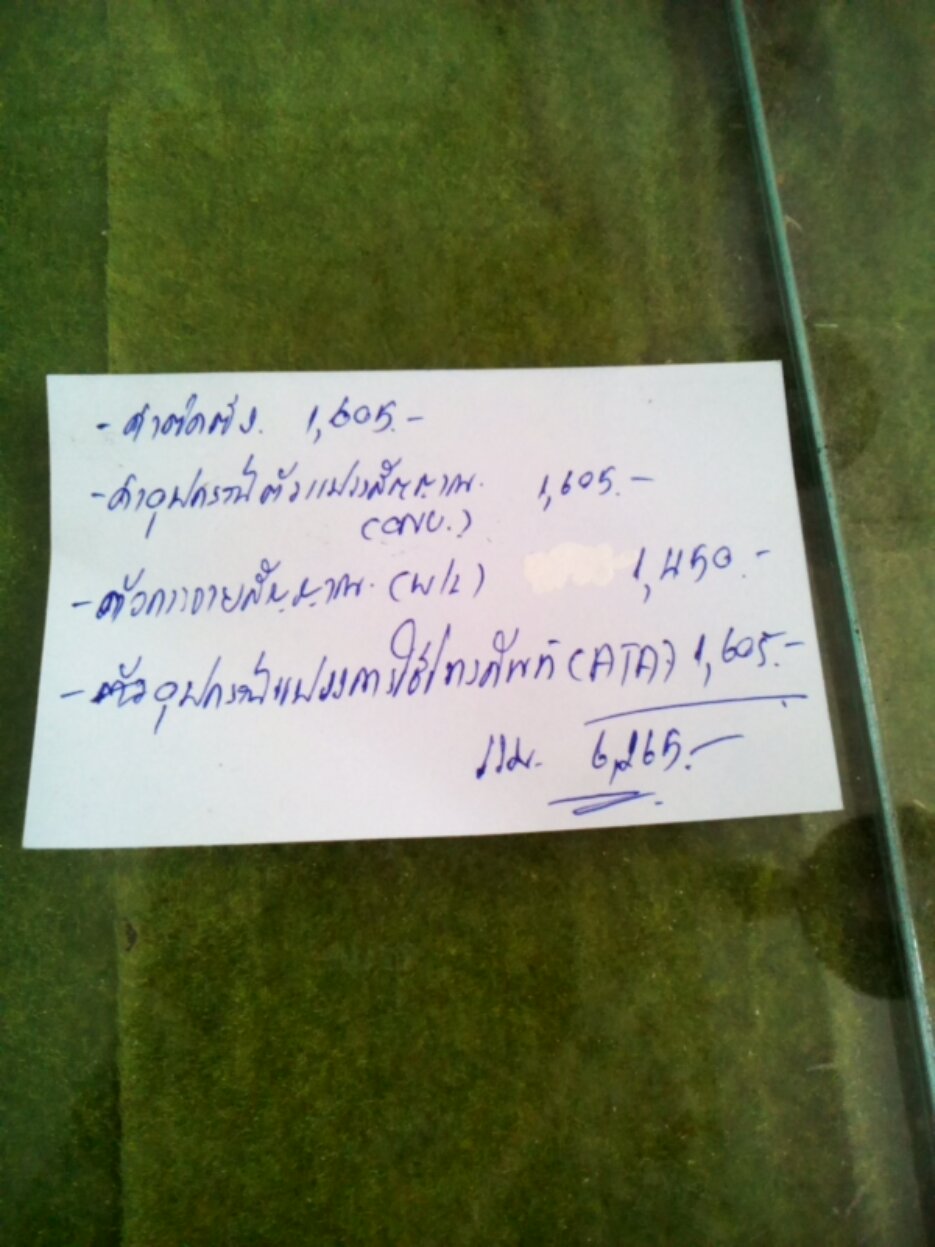 - ค่าติดตั้ง. 1,605.-
- ค่าอุปกรณ์ตัวแปลงสัญญาณ. 1,605.-
(ONU.)
- ตัวกระจายสัญญาณ. (W/L) 1,450.-
- ตัวอุปกรณ์แปลงการใช้โทรศัพท์ (ATA) 1,605.-
รวม. 6,265.-